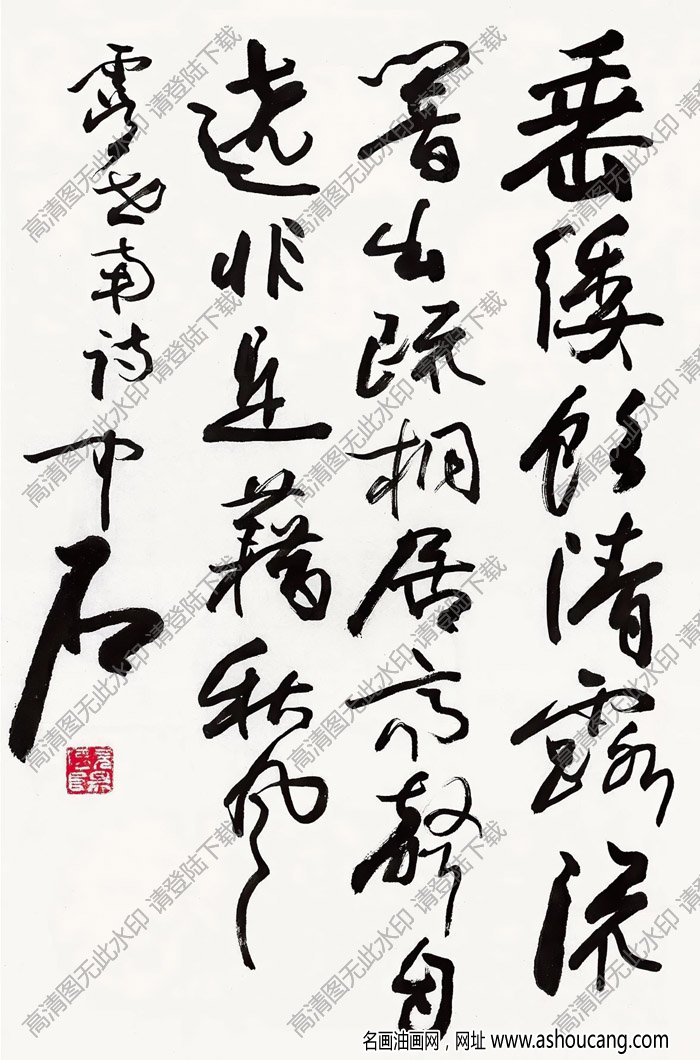 垂緌飲清露流
響出疏桐居高聲自
遠非是藉秋風
虞世南詩 中石
高清图无此水印 请登陆下载
名画油画网，网址 www.ashoucang.com